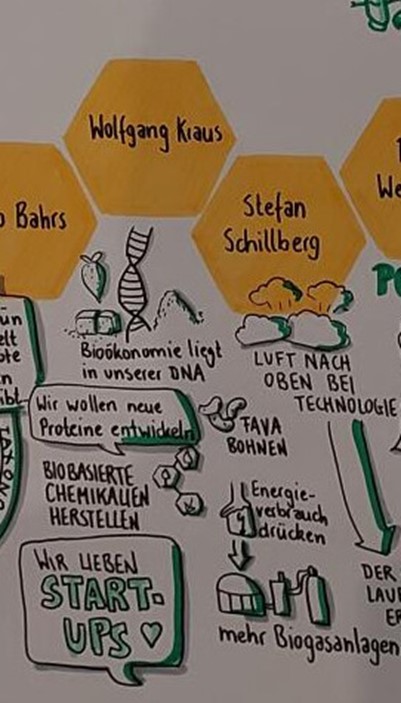 Wolfgang Kraus
Bahrs
Stefan
Schillberg
We
Bioökonomie liegt
in unserer DNA
LUFT NACH
OBEN BEI
TECHNOLOGIE
Wir wollen neue
Proteine entwickeln
FAVA
BOHNEN
BIOBASIERTE
CHEMIKALIEN
HERSTELLEN
Energie-
verbrauch
drücken
WIR LIEBEN
START-
UPS
mehr Biogasanlagen
DER
LAU